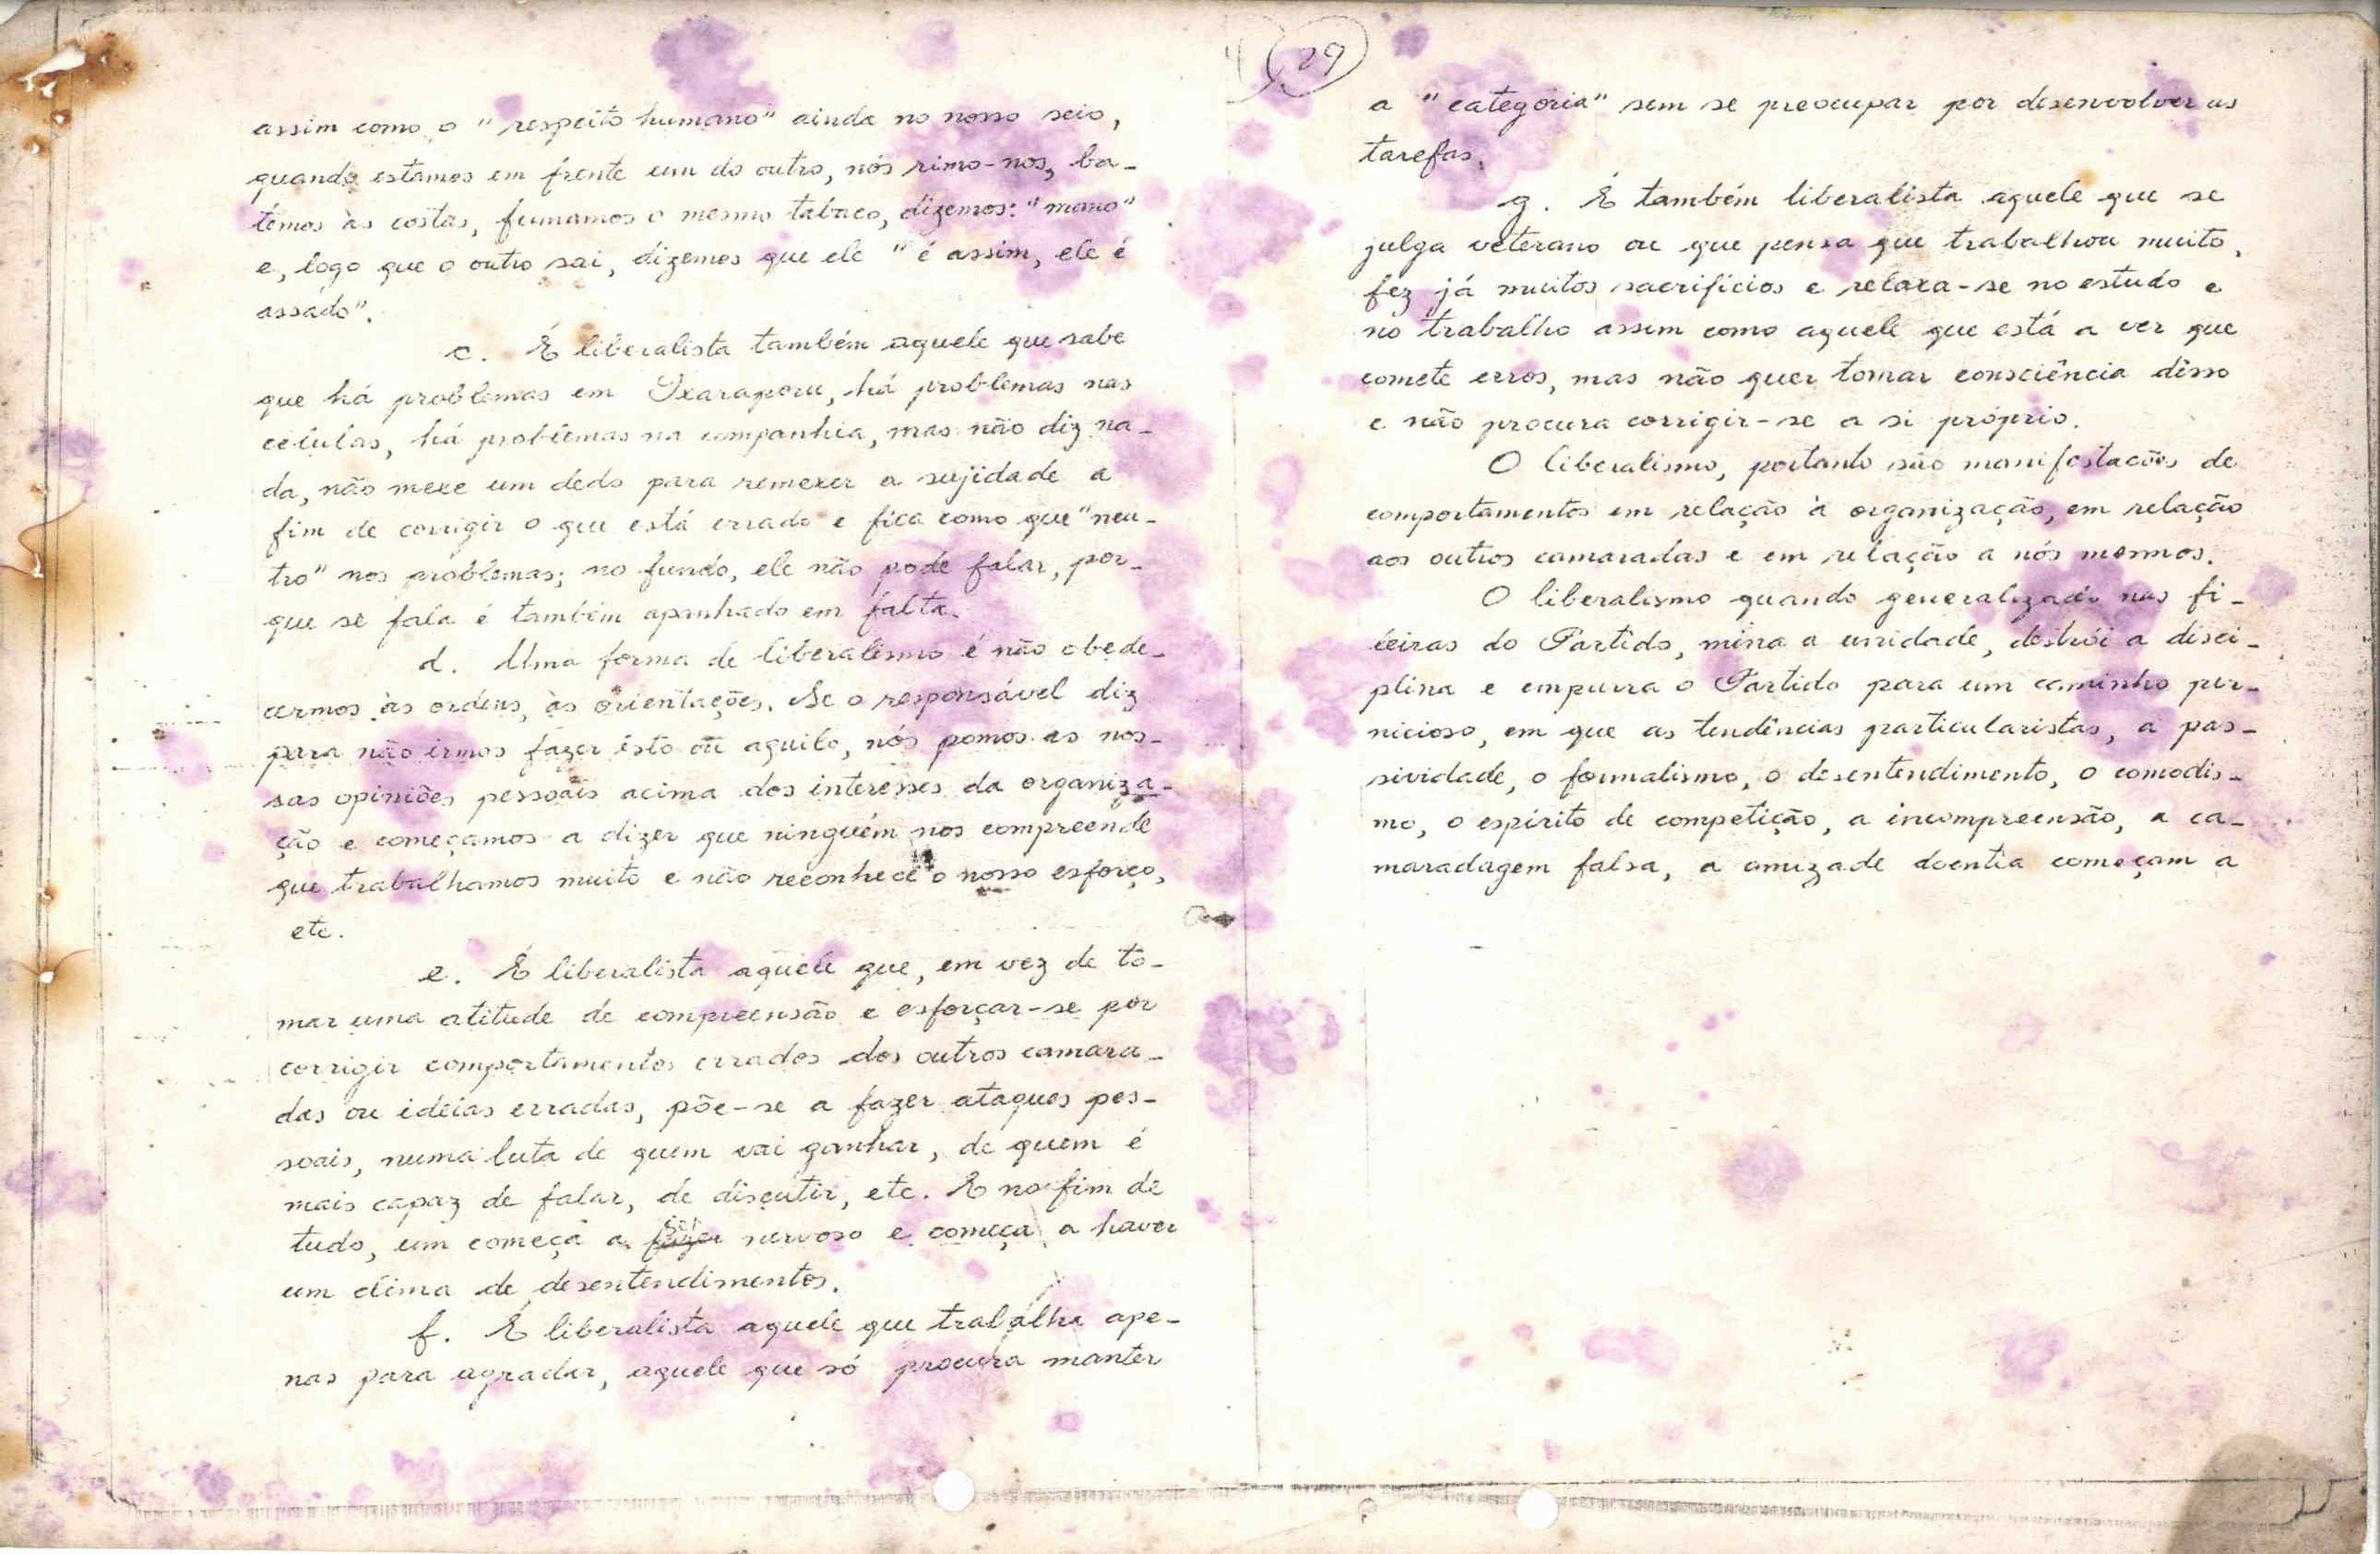 assim como o "respeito humano" ainda no nosso seio,
quando estamos em frente um do outro, nós rimo-nos, ba-
temos às costas, fumamos o mesmo tabaco, dizemos: "mano"
e, logo que o outro sai, dizemos que ele "é assim, ele é
assádo".
c. É liberalista também aquele que sabe
que há problemas em Ixaraporu, há problemas nas
células, há problemas na companhia, mas não diz na-
da, não mexe um dedo para remexer a sujidade a
fim de corrigir o que está errado e fica como que "neu-
tro" nos problemas; no fundo, ele não pode falar, por-
que se fala é também apanhado em falta.
d. Uma forma de liberalismo é não obede-
cermos às ordens, às orientações. Se o responsável diz
para não irmos fazer isto ou aquilo, nós pomos as nos-
sas opiniões pessoais acima dos interesses da organiza-
ção e começamos a dizer que ninguém nos compreende
que trabalhamos muito e não reconhece o nosso esforço,
etc.
e. É liberalista aquele que, em vez de to-
mar uma atitude de compreensão e esforçar-se por
corrigir comportamentos errados dos outros camara-
das ou ideias erradas, põe-se a fazer ataques pes-
soais, numa luta de quem vai ganhar, de quem é
mais capaz de falar, de discutir, etc. E no fim de
tudo, um começa a ser nervoso e começa a haver
um clima de desentendimentos.
f. É liberalista aquele que trabalha ape-
nas para agradar, aquele que só procura manter
29
a "categoria" sem se preocupar por desenvolver as
tarefas.
g. É também liberalista aquele que se
julga veterano ou que pensa que trabalhou muito,
fez já muitos sacrifícios e relaxa-se no estudo e
no trabalho assim como aquele que está a ver que
comete erros, mas não quer tomar consciência disso
e não procura corrigir-se a si próprio.
O liberalismo, portanto são manifestacões de
comportamentos em relação à organização, em relação
aos outros camaradas e em relação a nós mesmos.
O liberalismo quando generalizado nas fi-
leiras do Partido, mina a unidade, destrói a disci-
plina e empurra o Partido para um caminho per-
nicioso, em que as tendências particularistas, a pas-
sividade, o formalismo, o desentendimento, o comodis-
mo, o espírito de competição, a incompreensão, a ca-
maradagem falsa, a amizade doentia começam a